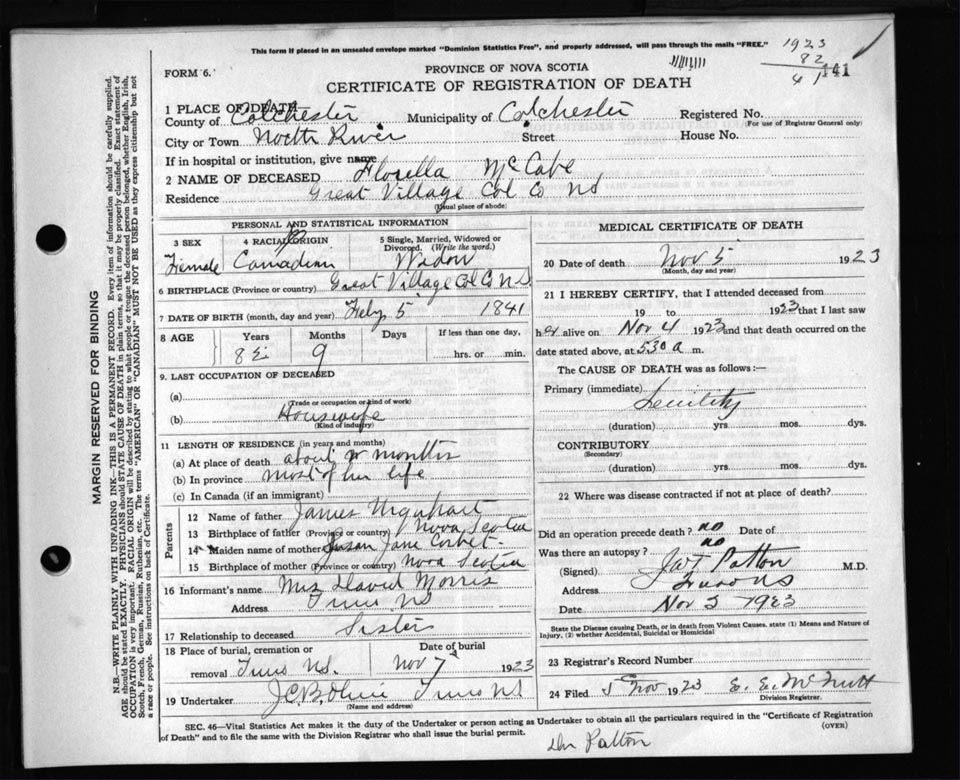 This form if placed in an unsealed envelope marked "Dominion Statistics Free", and properly addressed, will pass through the mails "FREE."
1923
82
41
141
FORM 6.
PROVINCE OF NOVA SCOTIA
CERTIFICATE OF REGISTRATION OF DEATH
1 PLACE OF DEATH
County of Colchester Municipality of Colchester Registered No.
(For use of Registrar General only)
City or Town North River Street House No.
If in hospital or institution, give name
2 NAME OF DECEASED Florella McCabe
Residence Great Village Col Co NS
(Usual place of abode)
PERSONAL AND STATISTICAL INFORMATION
3 SEX 4 RACIAL ORIGIN 5 Single, Married, Widowed or Divorced. (Write the word.)
Female Canadian Widow
6 BIRTHPLACE (Province or country) Great Village Col Co N.S.
7 DATE OF BIRTH (month, day and year) Feby 5 1841
8 AGE Years Months Days If less than one day,
9 hrs. or min.
9. LAST OCCUPATION OF DECEASED
(a)
(Trade or occupation or kind of work)
(b) Housewife
(Kind of industry)
11 LENGTH OF RESIDENCE (in years and months)
(a) At place of death about months
(b) In province most of her life
(c) In Canada (if an immigrant)
Parents
12 Name of father James Urquhart
13 Birthplace of father (Province or country) Nova Scotia
14 Maiden name of mother Susan Jane Corbet
15 Birthplace of mother (Province or country) Nova Scotia
16 Informant's name Mrs David Morris
Address Truro NS
17 Relationship to deceased Sister
18 Place of burial, cremation or removal Truro NS. Date of burial Nov 7 1923
19 Undertaker Truro NS
(Name and address)
MEDICAL CERTIFICATE OF DEATH
20 Date of death Nov 5 1923
(Month, day and year)
21 I HEREBY CERTIFY, that I attended deceased from
19 to 1923 that I last saw
her alive on Nov 4 1923 and that death occurred on the
date stated above, at 5.30 a m.
The CAUSE OF DEATH was as follows:—
Primary (immediate) Senility
(duration) yrs mos. dys.
CONTRIBUTORY
(Secondary)
(duration) yrs. mos. dys.
22 Where was disease contracted if not at place of death?
Did an operation precede death? no Date of
Was there an autopsy? no
(Signed) Patton M.D.
Address Truro NS
Date Nov 5 1923
State the Disease causing Death, or in Death from Violent Causes. state (1) Means and Nature of Injury, (2) whether Accidental, Suicidal or Homicidal
23 Registrar's Record Number
24 Filed 5 Nov 1923 E. E. McNutt
Division Registrar.
SEC. 46—Vital Statistics Act makes it the duty of the Undertaker or person acting as Undertaker to obtain all the particulars required in the "Certificate of Registration
of Death" and to file the same with the Division Registrar who shall issue the burial permit.
(OVER)
Dr Patton
MARGIN RESERVED FOR BINDING
N.B.—WRITE PLAINLY WITH UNFADING INK—THIS IS A PERMANENT RECORD. Every item of information should be carefully supplied.
AGE should be stated EXACTLY. PHYSICIANS should STATE CAUSE OF DEATH in plain terms, so that it may be properly classified. Exact statement of
OCCUPATION is very important. RACIAL ORIGIN will be described by stating to what people or tongue the deceased person belonged, whether English, Irish,
Scotch, French, German, Russian, Ruthenian, etc. The terms "AMERICAN" OR "CANADIAN" MUST NOT BE USED as they express citizenship but not
a race or people. See instructions on back of Certificate.